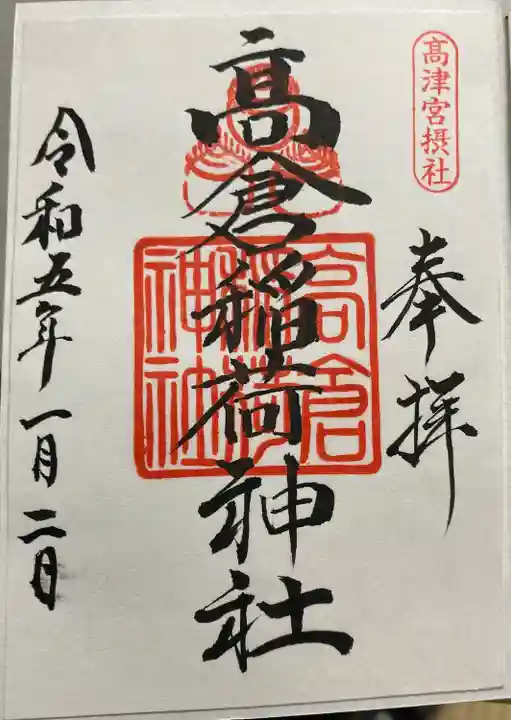 高津宮摂社
奉拝
高倉稲荷神社
高倉
稲荷
神社
令和五年一月二日